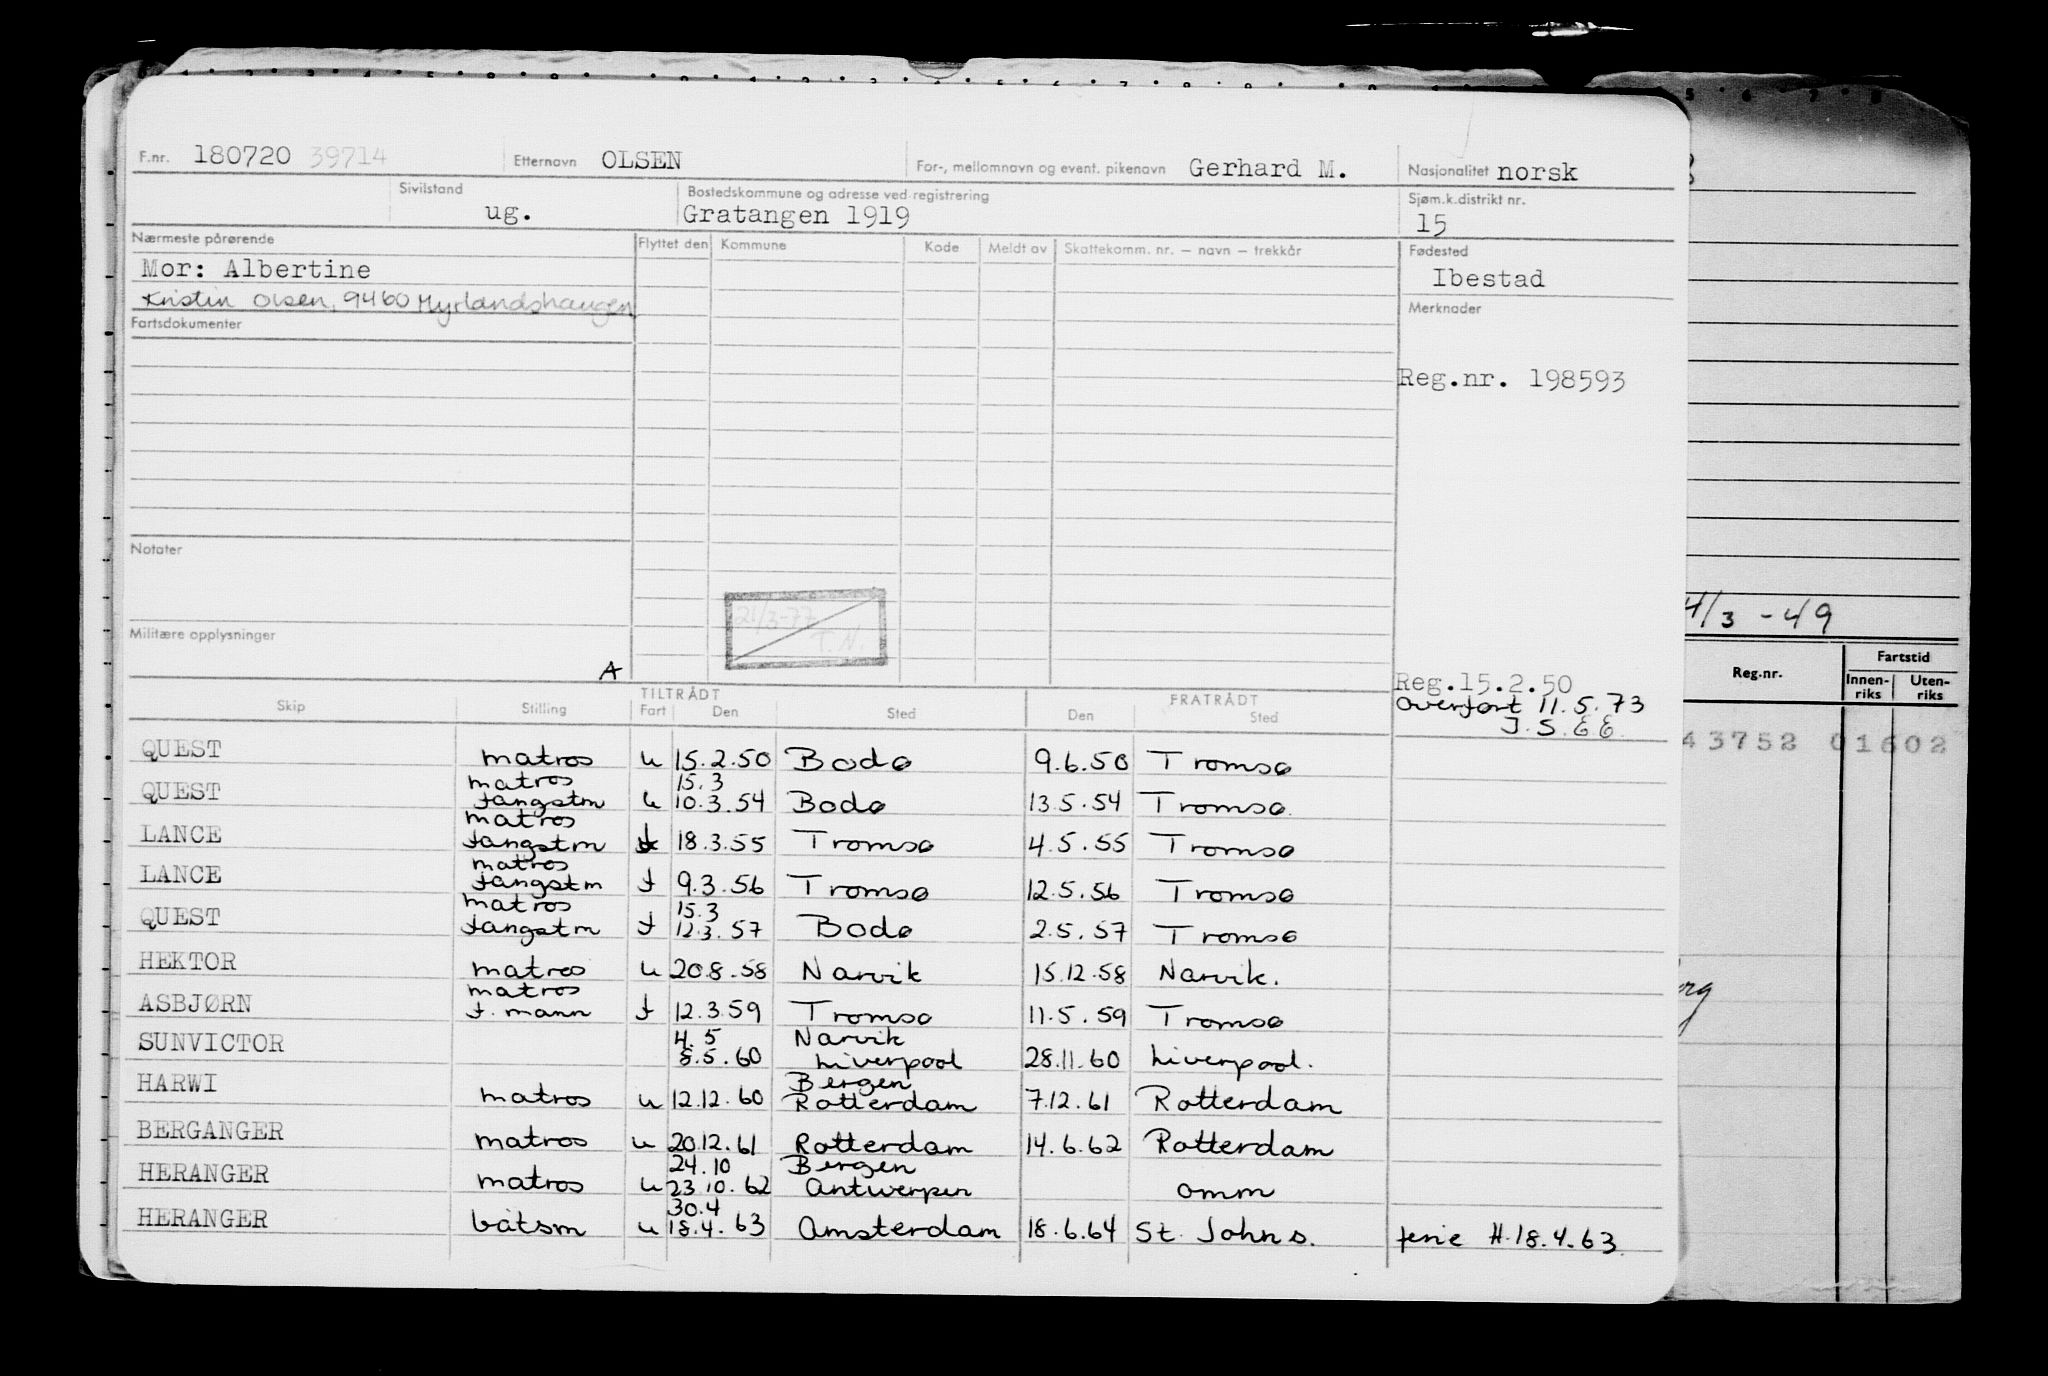 F.nr. 180720 39714 Etternavn OLSEN For-, mellomnavn og event. pikenavn Gerhard M. Nasjonalitet norsk
Sivilstand ug. Bostedskommune og adresse ved registrering Gratangen 1919 Sjøm.k.distrikt nr. 15
Nærmeste pårørende Flyttet den Kommune Kode Meldt av Skattekomm. nr. – navn – trekkår Fødested
Mor: Albertine Ibestad
Kristin Olsen, 9460 Myrlandshaugen
Fartsdokumenter Merknader
Reg.nr. 198593
Notater
21/3-77
T.N.
4/3 - 49
Militære opplysninger
A
Reg.15.2.50
Overført 11.5.73
J.S.EE.
Reg.nr. Fartstid
Innen-riks Uten-riks
43752 01602
TILTRÅDT FRATRÅDT
Skip Stilling Fart Den Sted Den Sted
QUEST matros u 15.2.50 Bodø 9.6.50 Tromsø
matros 15.3
QUEST fangstm u 10.3.54 Bodø 13.5.54 Tromsø
matros
LANCE fangstm f 18.3.55 Tromsø 4.5.55 Tromsø
matros
LANCE fangstm f 9.3.56 Tromsø 12.5.56 Tromsø
matros 15.3
QUEST fangstm f 12.3.57 Bodø 2.5.57 Tromsø
HEKTOR matros u 20.8.58 Narvik 15.12.58 Narvik.
matros
ASBJØRN f. mann f 12.3.59 Tromsø 11.5.59 Tromsø
4.5 Narvik
SUNVICTOR 8.5.60 Liverpool 28.11.60 Liverpool.
Bergen
HARWI matros u 12.12.60 Rotterdam 7.12.61 Rotterdam
BERGANGER matros u 20.12.61 Rotterdam 14.6.62 Rotterdam
24.10 Bergen
HERANGER matros u 23.10.62 Antwerpen omm
30.4
HERANGER båtsm u 18.4.63 Amsterdam 18.6.64 St. Johns. ferie H.18.4.63